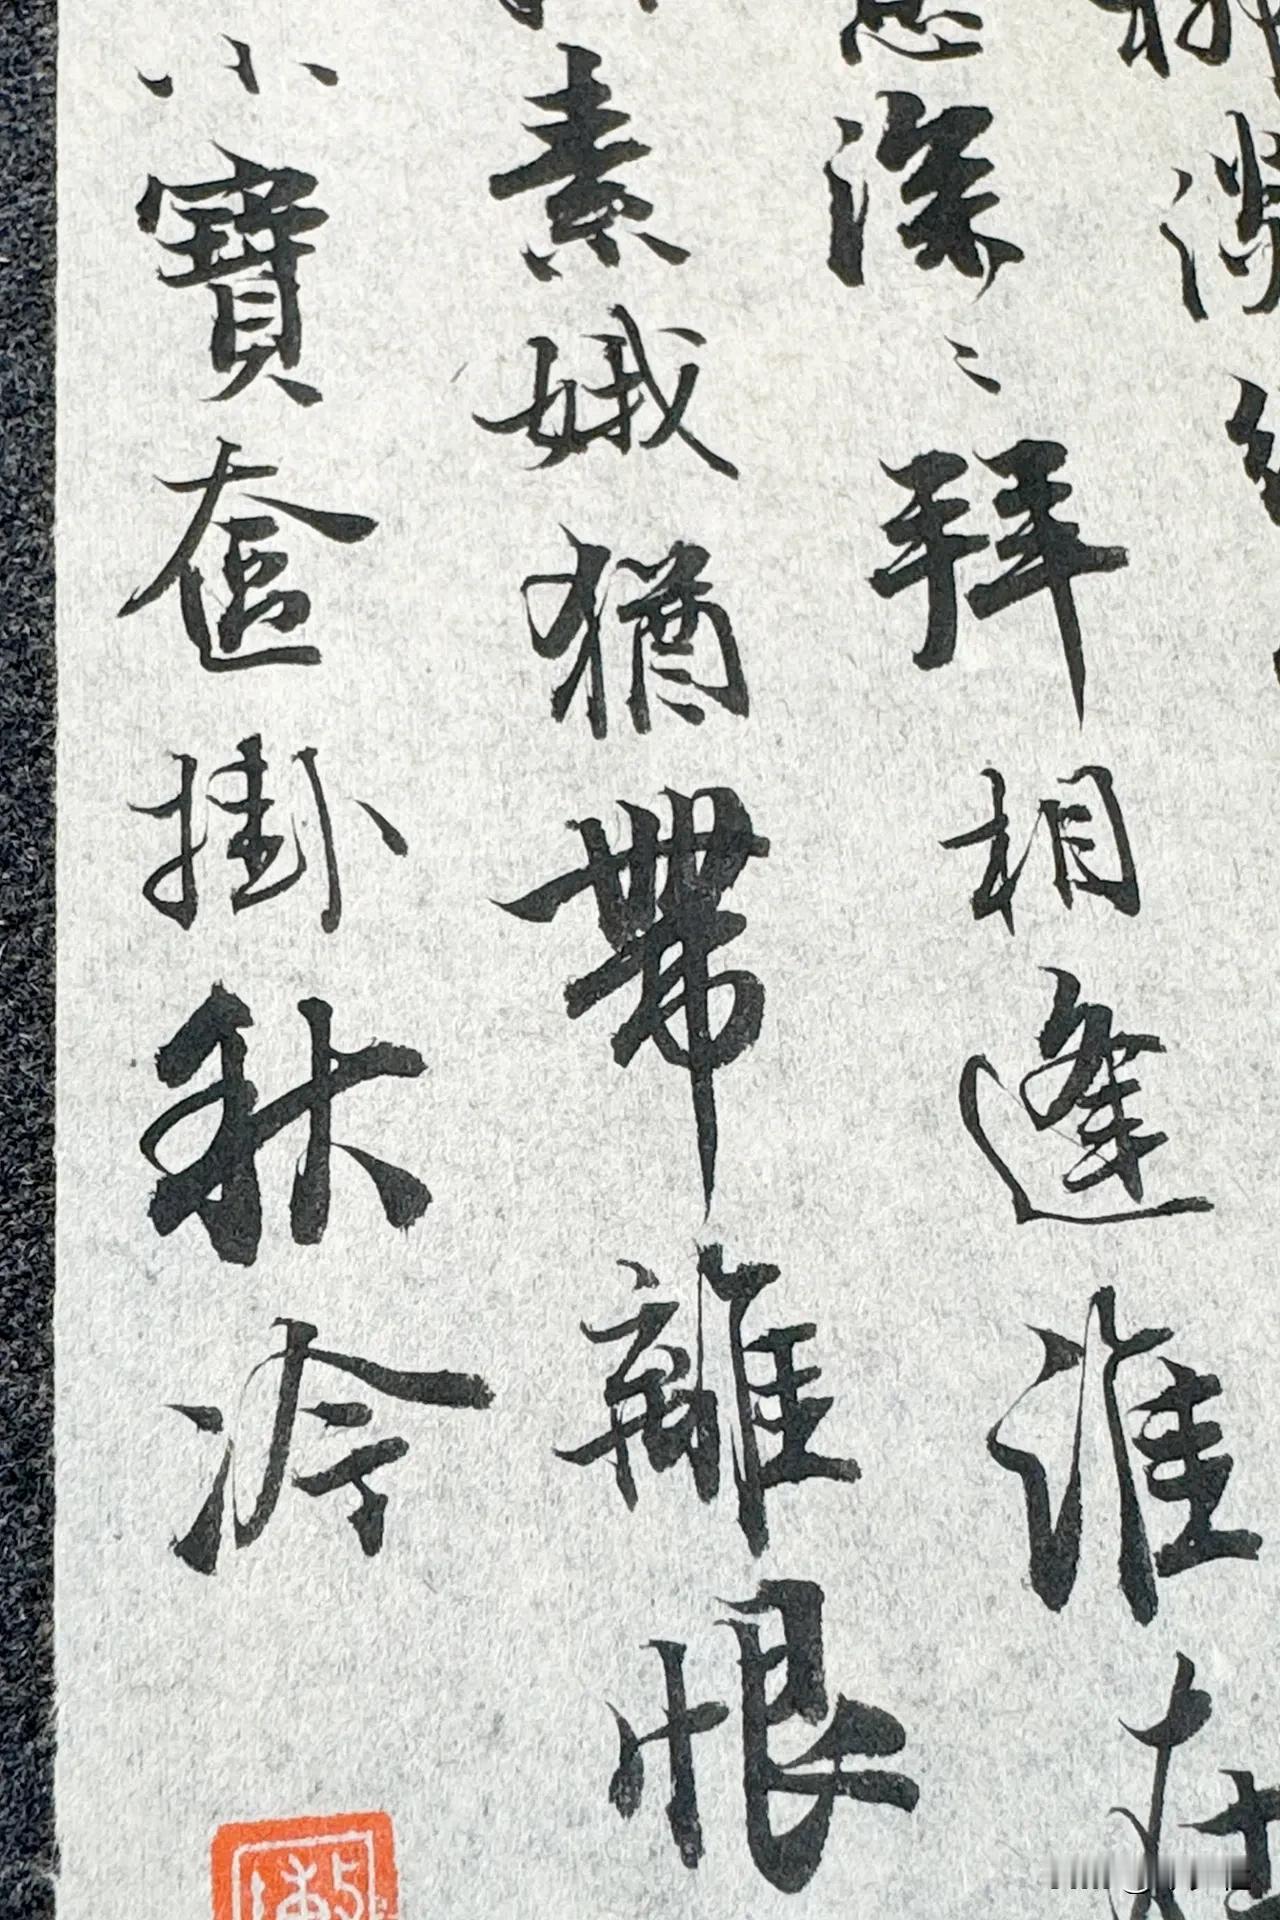 意深〻拜相逢誰在
素娥猶帶離恨
小寶奩掛秋冷